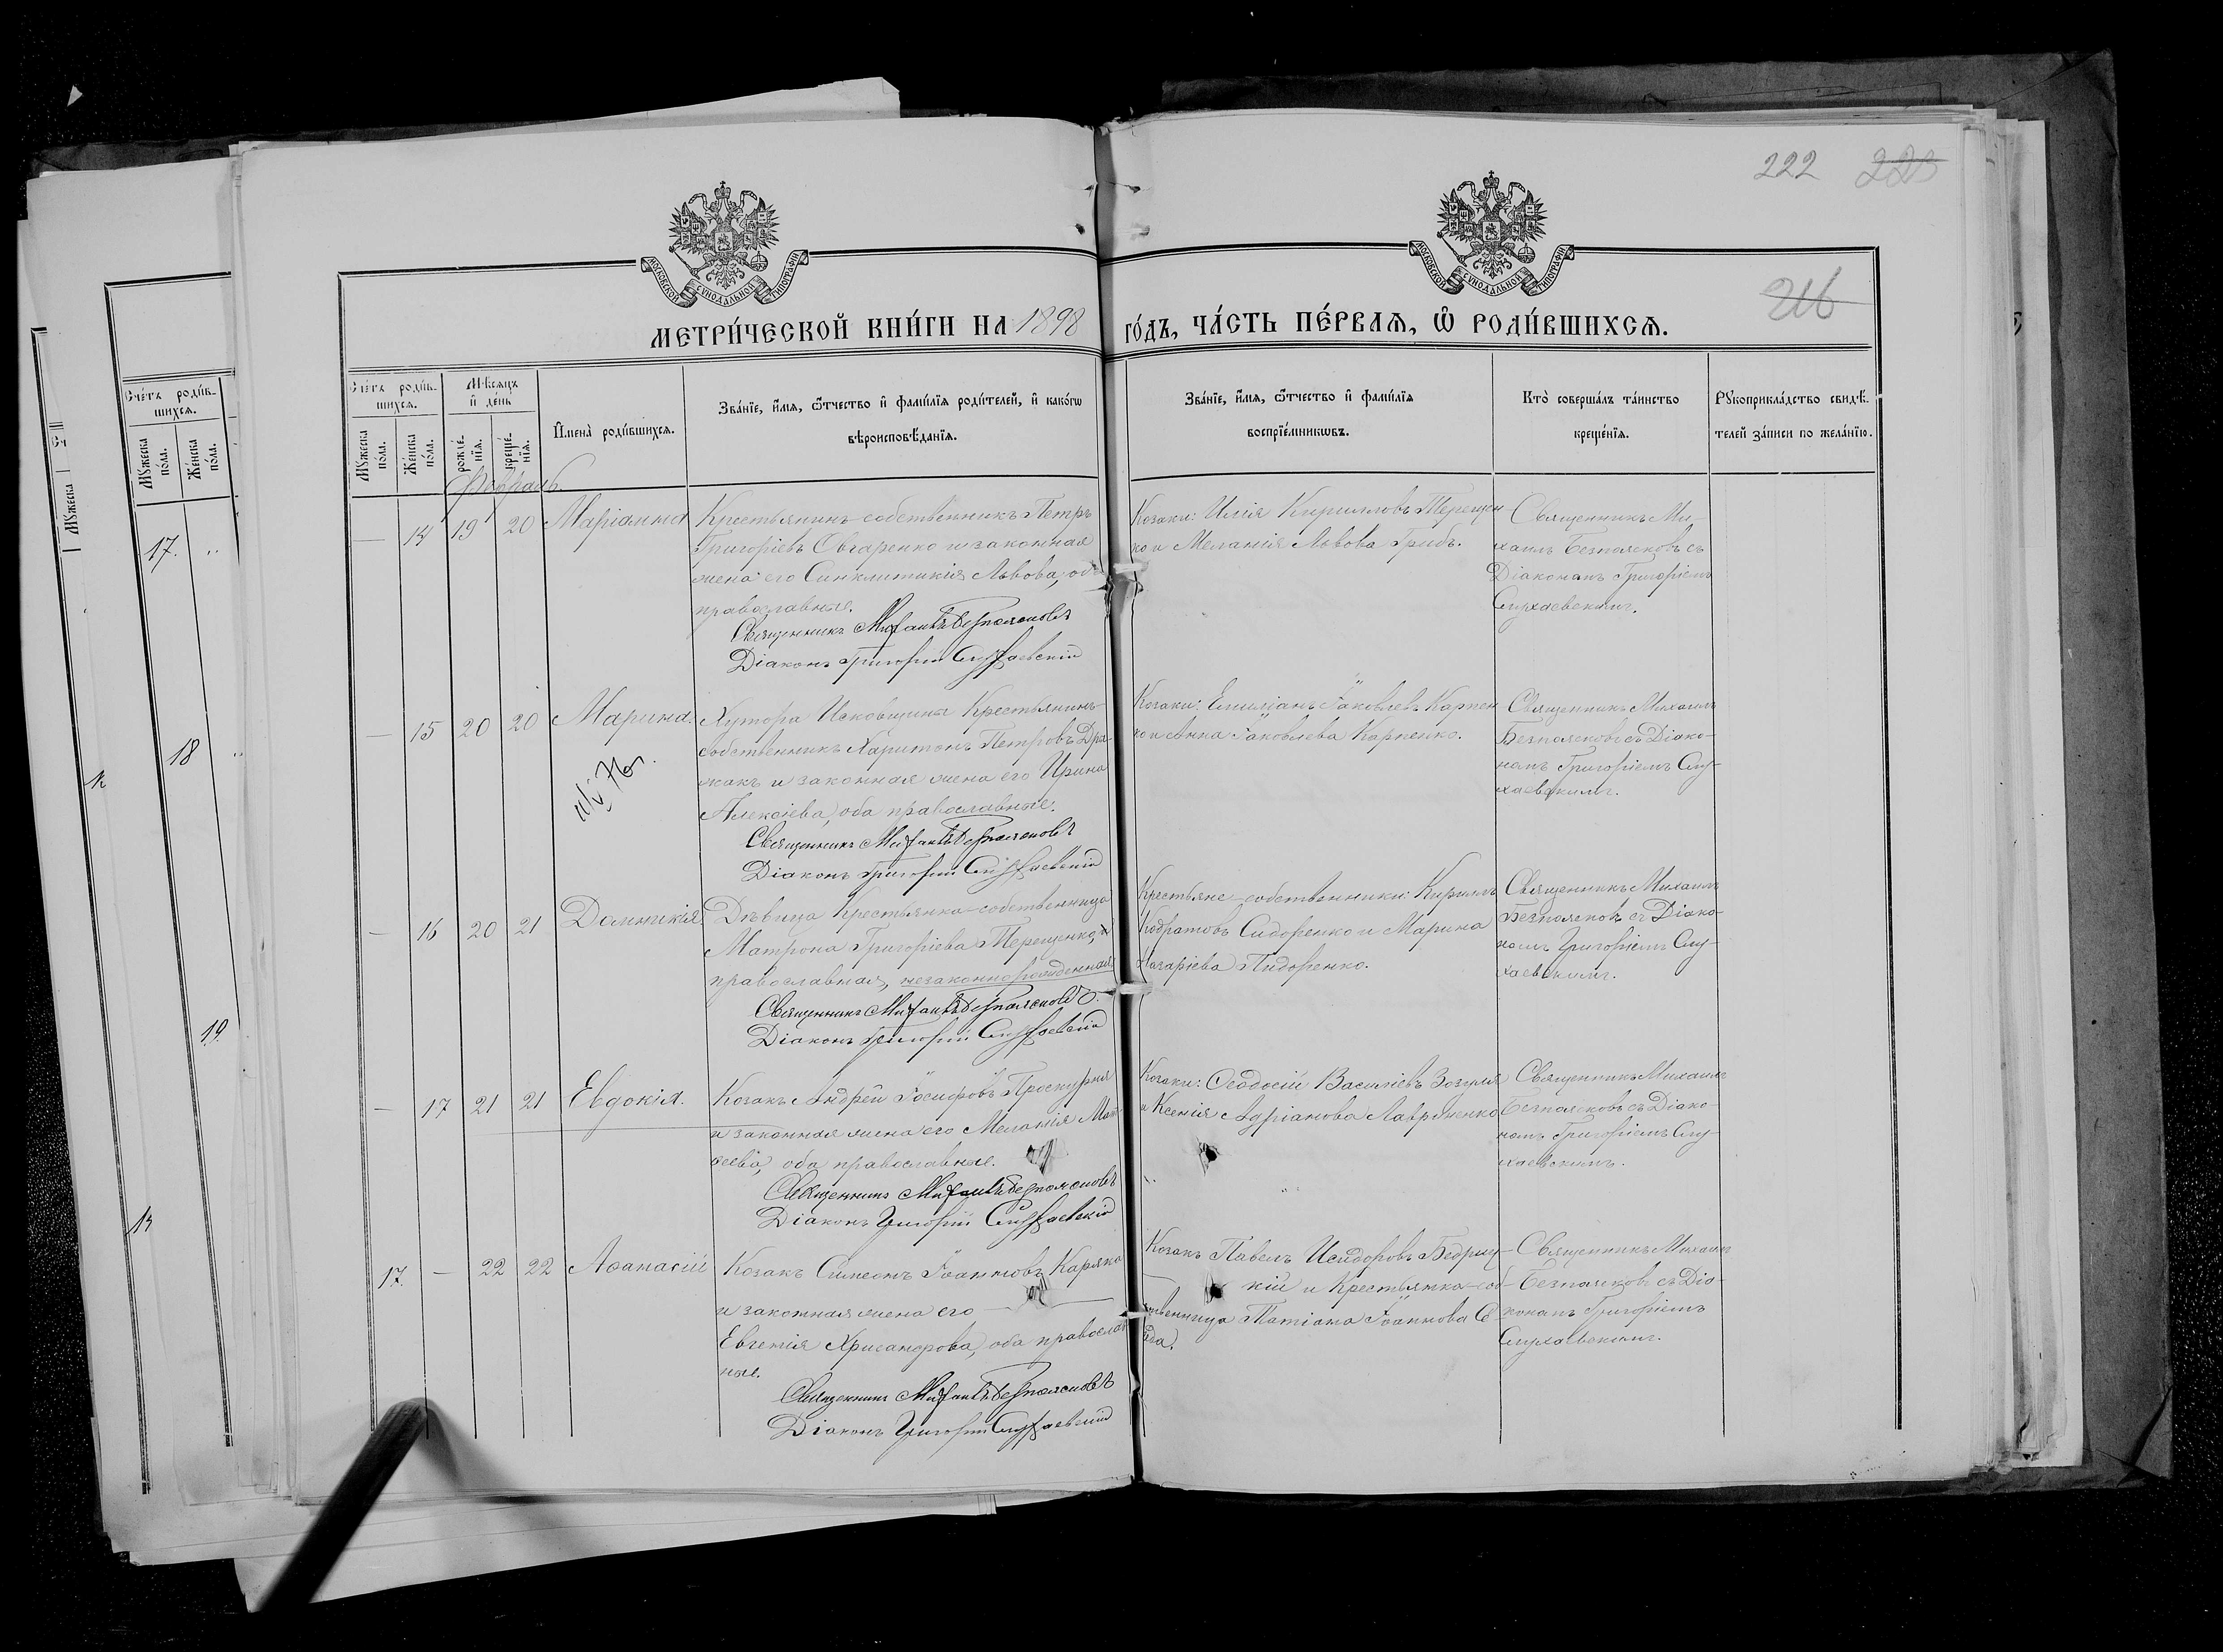 222 223
216
МОСКОВСКОЙ СѴНОДАЛЬНОЙ ТИПОГРАФІИ
МОСКОВСКОЙ СѴНОДАЛЬНОЙ ТИПОГРАФІИ
МЕТРИ́ЧЕСКОЙ КНИ́ГИ НА 1898 ГО́ДЪ, ЧА́СТЬ ПЕ́РВАѦ, Ѡ РОДИ́ВШИХСѦ.
Сче́тъ роди́вшихсѧ.
Мѣсѧцъ и де́нь
Мꙋжеска по́ла.
Же́нска по́ла.
рожде́нїѧ.
креще́нїѧ.
Имена̀ роди́вшихсѧ.
Зва́нїе, и́мѧ, ѻ́тчество и фами́лїѧ роди́телей, и како́гѡ
вѣроисповѣ́данїѧ.
Зва́нїе, и́мѧ, ѻ́тчество и фами́лїѧ
воспрїе́мникѡвъ.
Кто̀ соверша́лъ та́инство
креще́нїѧ.
Рꙋкоприкла́дство свидѣ́-
телей за́писи по жела́нїю.
Февраль
— 14 19 20 Маріанна
Крестьянинъ-собственникъ Петръ
Григоріевъ Овчаренко и законная
жена его Синклитикія Львова, оба
православные.
Священникъ Михаилъ Безпоясковъ
Діаконъ Григорій
Козаки: Илія Кирилловъ Терещен
ко и Меланія Львова Грибъ.
Священникъ Ми-
хаилъ Безпоясковъ съ
Діакономъ Григоріемъ
— 15 20 20 Марина.
Хутора Исковщины Крестьянинъ-
собственникъ Харитонъ Петровъ Дра-
жакъ и законная жена его Ирина
Алексіева, оба православные.
Священникъ Михаилъ Безпоясковъ
Діаконъ Григорій
Козаки: Емиліанъ Іаковлевъ Карпен
ко и Анна Іаковлева Карпенко.
Священникъ Михаилъ
Безпоясковъ съ Діако-
номъ Григоріемъ
— 16 20 21 Домникія
Дѣвица Крестьянка-собственница
Матрона Григоріева Терещенко,
православная, незаконнорожденная
Священникъ Михаилъ Безпоясковъ.
Діаконъ Григорій
Крестьяне-собственники: Кириллъ
Кодратовъ Сидоренко и Марина
Назаріева Сидоренко.
Священникъ Михаилъ
Безпоясковъ съ Діако-
номъ Григоріемъ
— 17 21 21 Евдокія.
Козакъ Андрей Іосифовъ Проскурня
и законная жена его Меланія
оба православные.
Священникъ Михаилъ Безпоясковъ
Діаконъ Григорій
Козаки: Ѳеодосій Василіевъ Зозуля
и Ксенія Адріанова Лавриненко
Священникъ Михаилъ
Безпоясковъ съ Діако-
номъ Григоріемъ
17. — 22 22 Аѳанасій
Козакъ Симеонъ Іоанновъ Каряка
и законная жена его —
Евгенія Хрисанфова, оба православ
ные.
Священникъ Михаилъ Безпоясковъ
Діаконъ Григорій
Козакъ Павелъ Исидоровъ Бедриц-
кій и Крестьянка-соб-
ственница Татіана Іоаннова
Священникъ Михаилъ
Безпоясковъ съ Діа-
кономъ Григоріемъ
Сче́тъ роди́вшихсѧ.
Мꙋжеска по́ла.
Же́нска по́ла.
Мꙋжеска
17.
18
19.